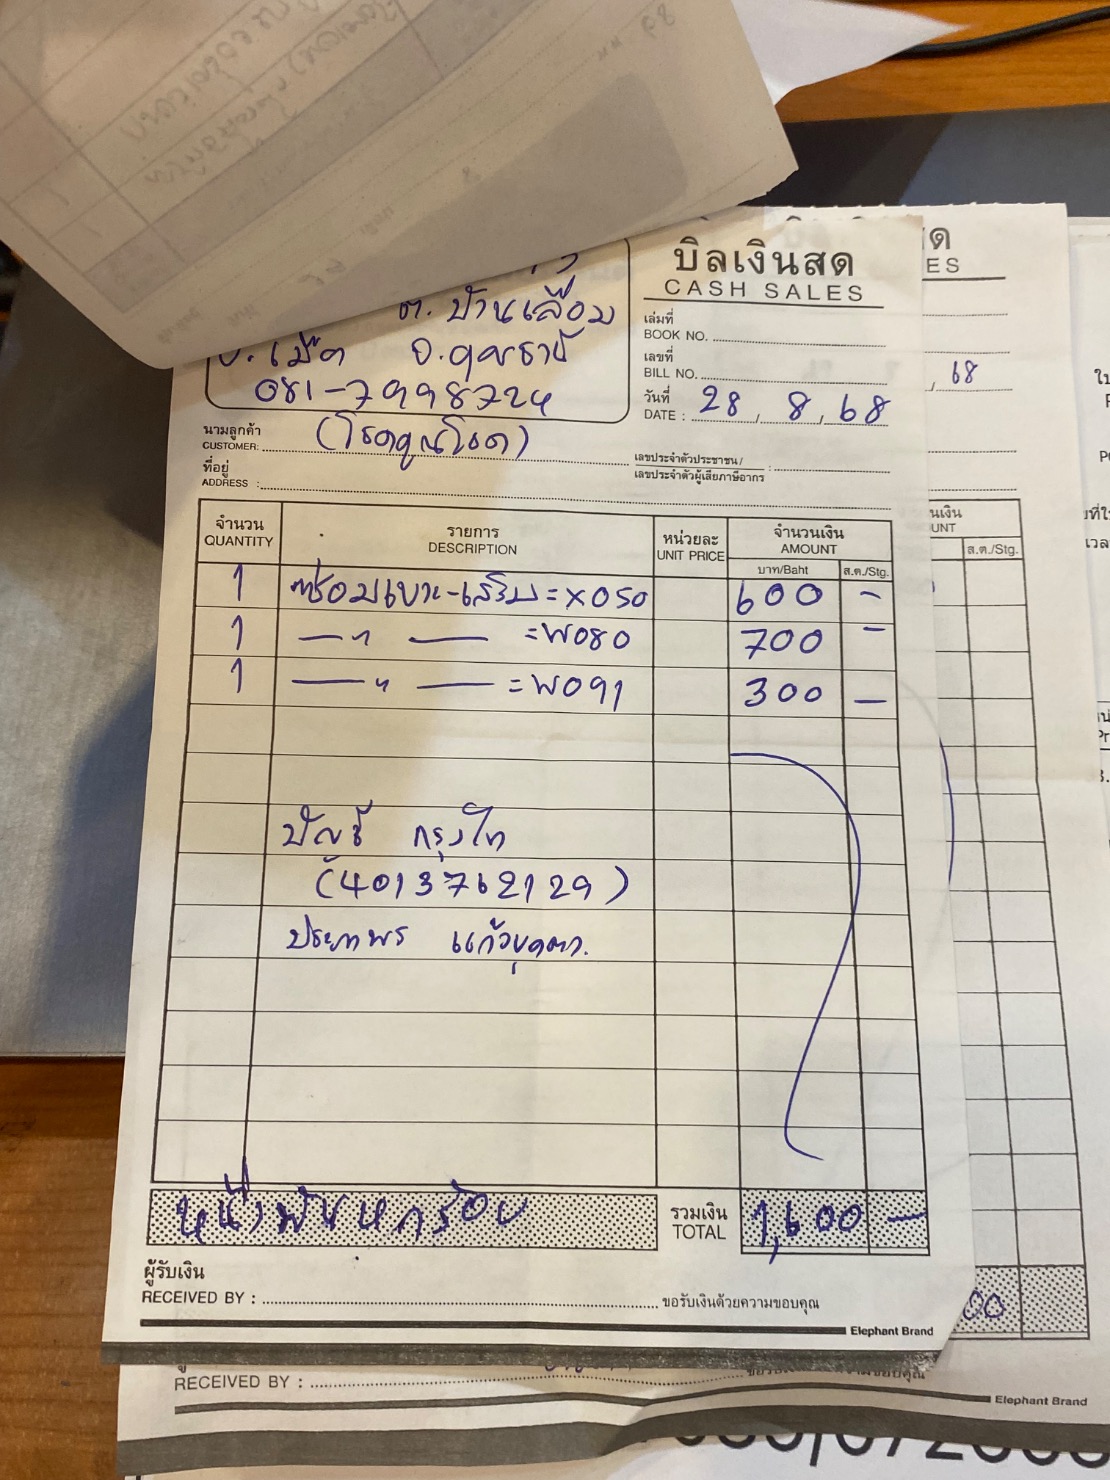 บิลเงินสด
CASH SALES
ต. บ้านเลื่อม
อ. เมือง จ. อุดรธานี
081-7998724
เล่มที่
BOOK NO.
เลขที่
BILL NO.
วันที่
DATE : 28 / 8 / 68
นามลูกค้า
CUSTOMER: (โชคคูณโชค)
เลขประจำตัวประชาชน /
เลขประจำตัวผู้เสียภาษีอากร :
ที่อยู่
ADDRESS :
จำนวน รายการ หน่วยละ จำนวนเงิน
QUANTITY DESCRIPTION UNIT PRICE AMOUNT
บาท/Baht ส.ต./Stg.
1 ซ่อมเบาะ-เสริม = X050 600 -
1 — " — = W080 700 -
1 — " — = W091 300 -
บัญชี กรุงไทย
(4013762129)
หนึ่งพันหกร้อย รวมเงิน 1,600 -
TOTAL
ผู้รับเงิน
RECEIVED BY : ขอรับเงินด้วยความขอบคุณ
Elephant Brand
ด
ES
68
นเงิน
UNT
ส.ต./Stg.
00
RECEIVED BY :
Elephant Brand